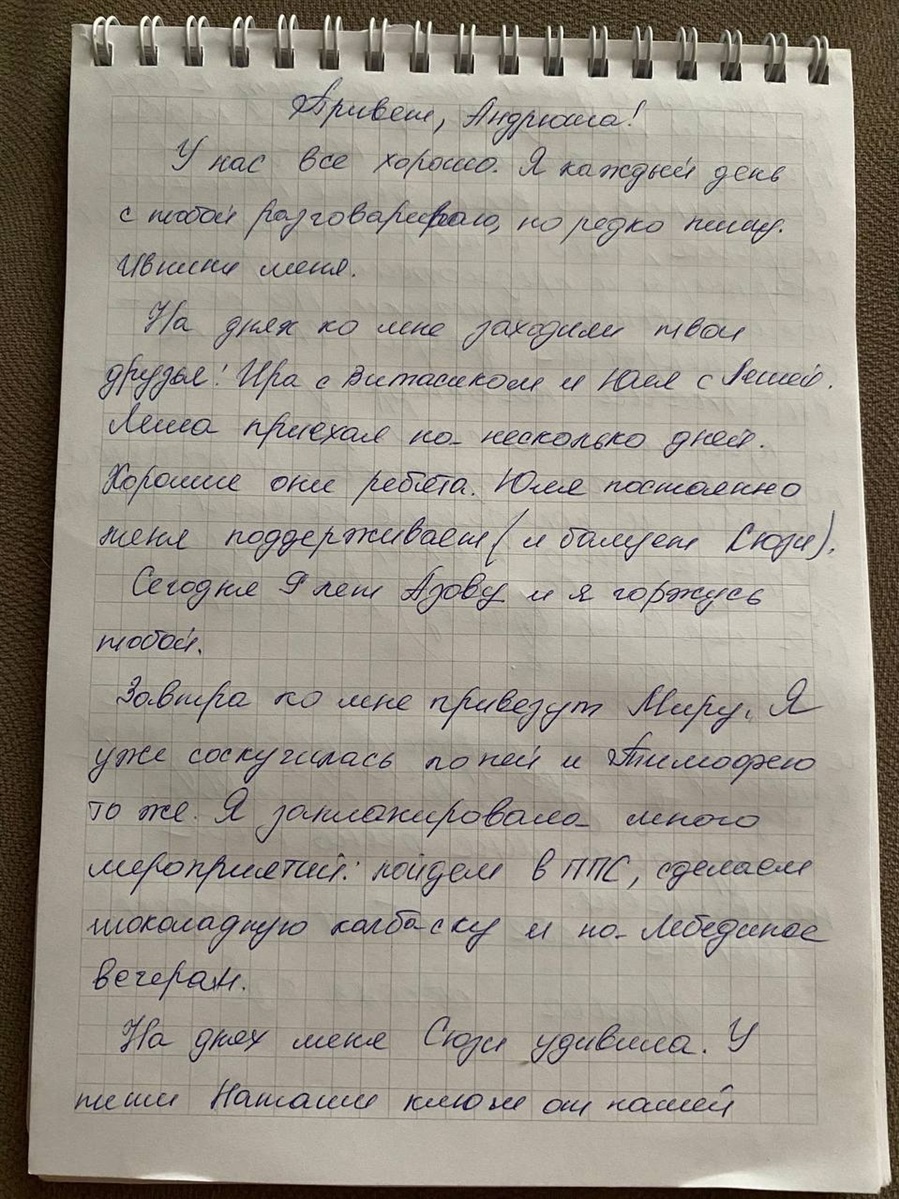 Привет, Андрюша!
У нас все хорошо. Я каждый день
с тобой разговариваю, но редко пишу.
Извини меня.
На днях ко мне заходили твои
друзья! Ира с Витасиком и Юля с Лешей.
Леша приехал на несколько дней.
Хорошие они ребята. Юля постоянно
меня поддерживает (и балует Сюзи).
Сегодня 9 лет Азову и я горжусь
тобой.
Завтра ко мне привезут Миру. Я
уже соскучилась по ней и Тимофею
то же. Я запланировала много
мероприятий: пойдем в ППС, сделаем
шоколадную колбаску и на Лебединое
вечерам.
На днях меня Сюзи удивила. У
тети Наташи ключи от нашей